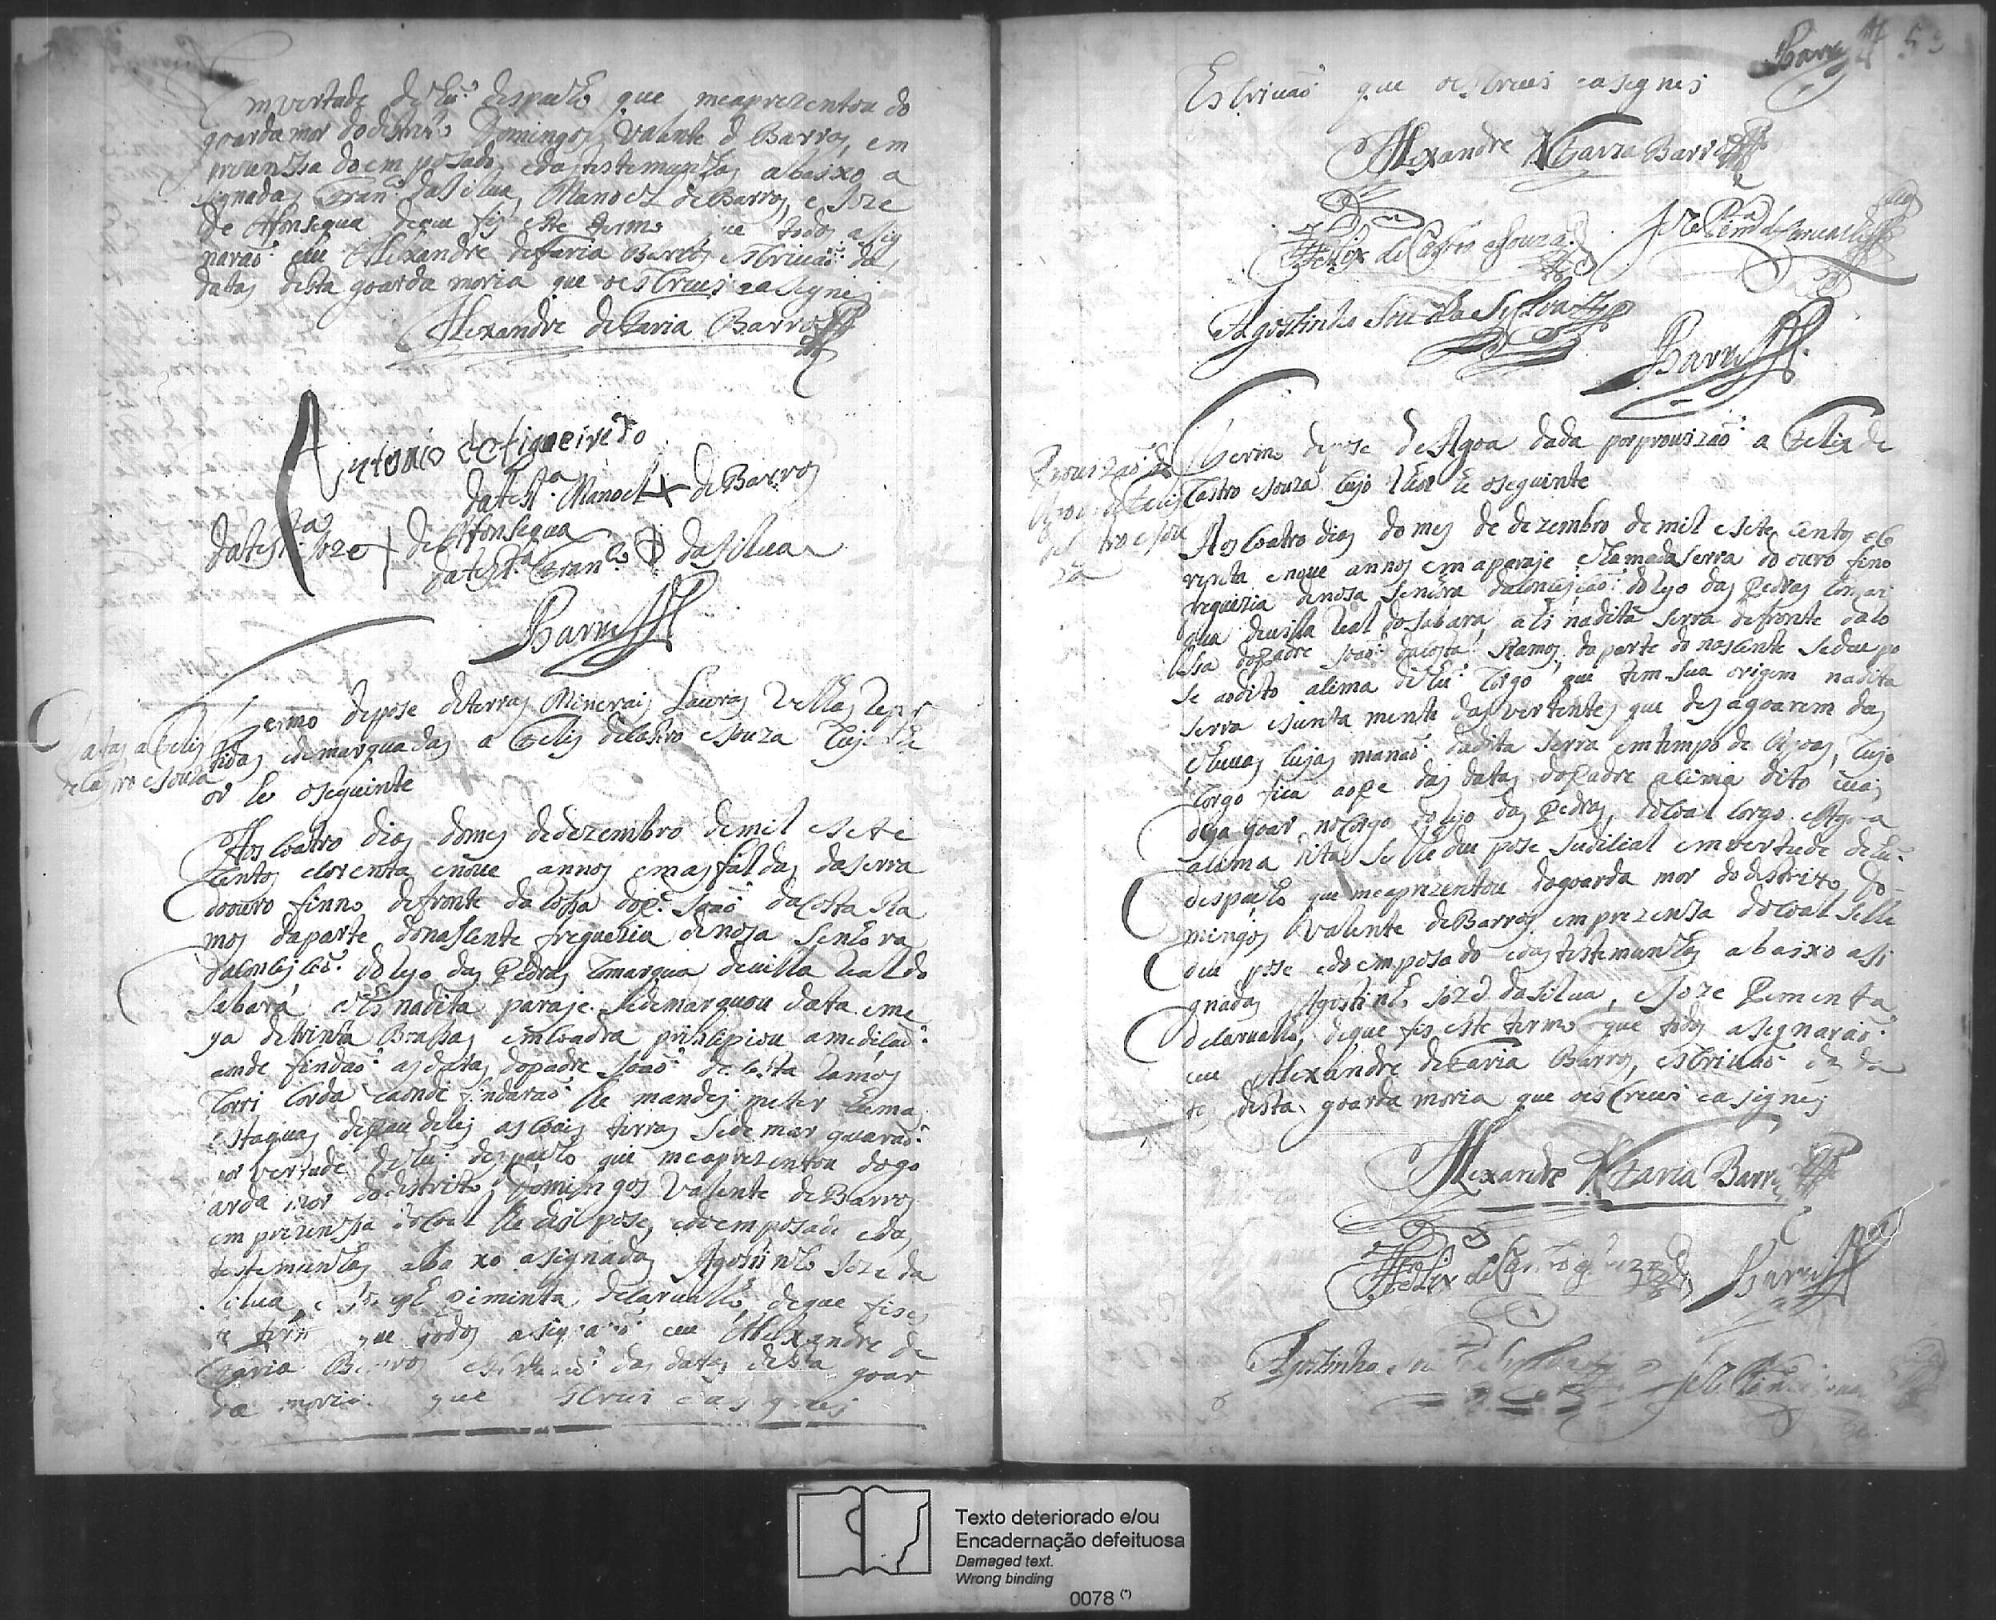 em vertude de hũ despacho que meaprezentou do
goarda mor do destrito Domingos Valente de Barros, em
prezenssa do em posado, e das testemunhas abaixo a
signadas Fran.co da Silua, Manoel de Barros, e Joze
de Afonsequa de que fis este termo que todos asig
narão eu Alexandre de Faria Barros escriuão das
datas desta goarda moria que oescreui e asignei
Alexandre de Faria Barros
Antonio de Figueiredo
da test.a Manoel + de Barros
da test.a Joze + de Afonsequa
da test.a Fran.co da Silua
Barros
Datas a Felis
de Castro e Souza
Termo depose de terras Minerais Lauras Velhas repar
tidas e demarquadas a Felis de Castro e Souza cujo the
or he oseguinte
Aos coatro dias do mes de dezembro de mil e sete
centos e corenta e noue annos em as faldas da serra
do ouro finno defronte da cohza do P.e João da Costa Ra
mos da parte do naslente freguezia de nosa Senhora
da Conceicão do Rejo das Pedras Comarqua de uilla Real do
Sabará e ahi na dita paraje se demarquou data e me
ya de trinta Brassas em coadra prinsipiou a medicão
aonde findão as datas do padre João da Costa Ramos
Corri Corda e aonde findarão lhe mandei meter huma
estaquas de pau de lej as coais terras se de mar quarão
por vertude de hũ despacho que meaprezentou do go
arda mor do destrito Domingos Valente de Barros
em prezenssa do coal lhe dei pose, e do em posado e das
testemunhas abaixo asignadas Agostinho Joze da
Silua, e Joseph Pimenta de Carualho, de que fis es
te termo que todos asignarão eu Alexandre de
Faria Barros escriuão das datas desta goar
da moria que escreui e asignei
Barros 53
Escriuão que oescreui e asignei
Alexandre de Faria Barros
Felix de Castro e Souza
Joze Pim.ta de Carualho
Agostinho Joze da Sylva
Barros
Prouizão de
Agoa de Felis
de Castro e Sou
za
Termo depose de Agoa dada por prouizão a Felix de
Castro e Souza cujo theor he oseguinte
Aos coatro dias do mes de dezembro de mil e sete centos e co
renta e noue annos em aparaje chamada Serra do ouro fino
freguezia de nosa Senhora da Conceicão do Rejo das Pedras Comar
qua de uilla Real do Sabará, ahi na dita serra defronte da co
hza do padre João da Costa Ramos, da parte do noscente se deu po
se ao dito acima de hũ Corgo que tem sua origem na dita
serra e junta mente das vertentes que des agoarem das
chuuas cujas manão da dita serra em tempo de agoas, cujo
Corgo fica ao pe das datas do padre acima dito e uai
desa goar no Corgo do Rejo das Pedras, do coal Corgo e Agoa
acima dita se lhe deu pose Judicial em vertude de hũ
despacho que meaprezentou do goarda mor do destrito, Do
mingos Valente de Barros, em prezensa do coal se lhe
deu pose e do em posado e das testemunhas abaixo asi
gnadas Agostinho Joze da Silua, e Joze Pementa
de Carualho, de que fis este termo que todos asignarão
eu Alexandre de Faria Barros, escriuão das da
tas desta goarda moria que oescreui e asignei
Alexandre de Faria Barros
Felix de Castro e Souza
Barros
Agostinho Joze da Sylva
Texto deteriorado e/ou
Encadernação defeituosa
Damaged text.
Wrong binding
0078 (*)